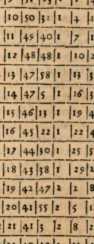 10 50 1 4
11 49 40 1 7
12 48 48 1 10
13 47 58 1 13
14 47 5 1 16
15 46 13 1 19
16 45 22 1 22
17 44 30 1 25
18 43 38 1 29
19 42 47 2 2 8
20 41 55 2 5
21 41 3 2 8